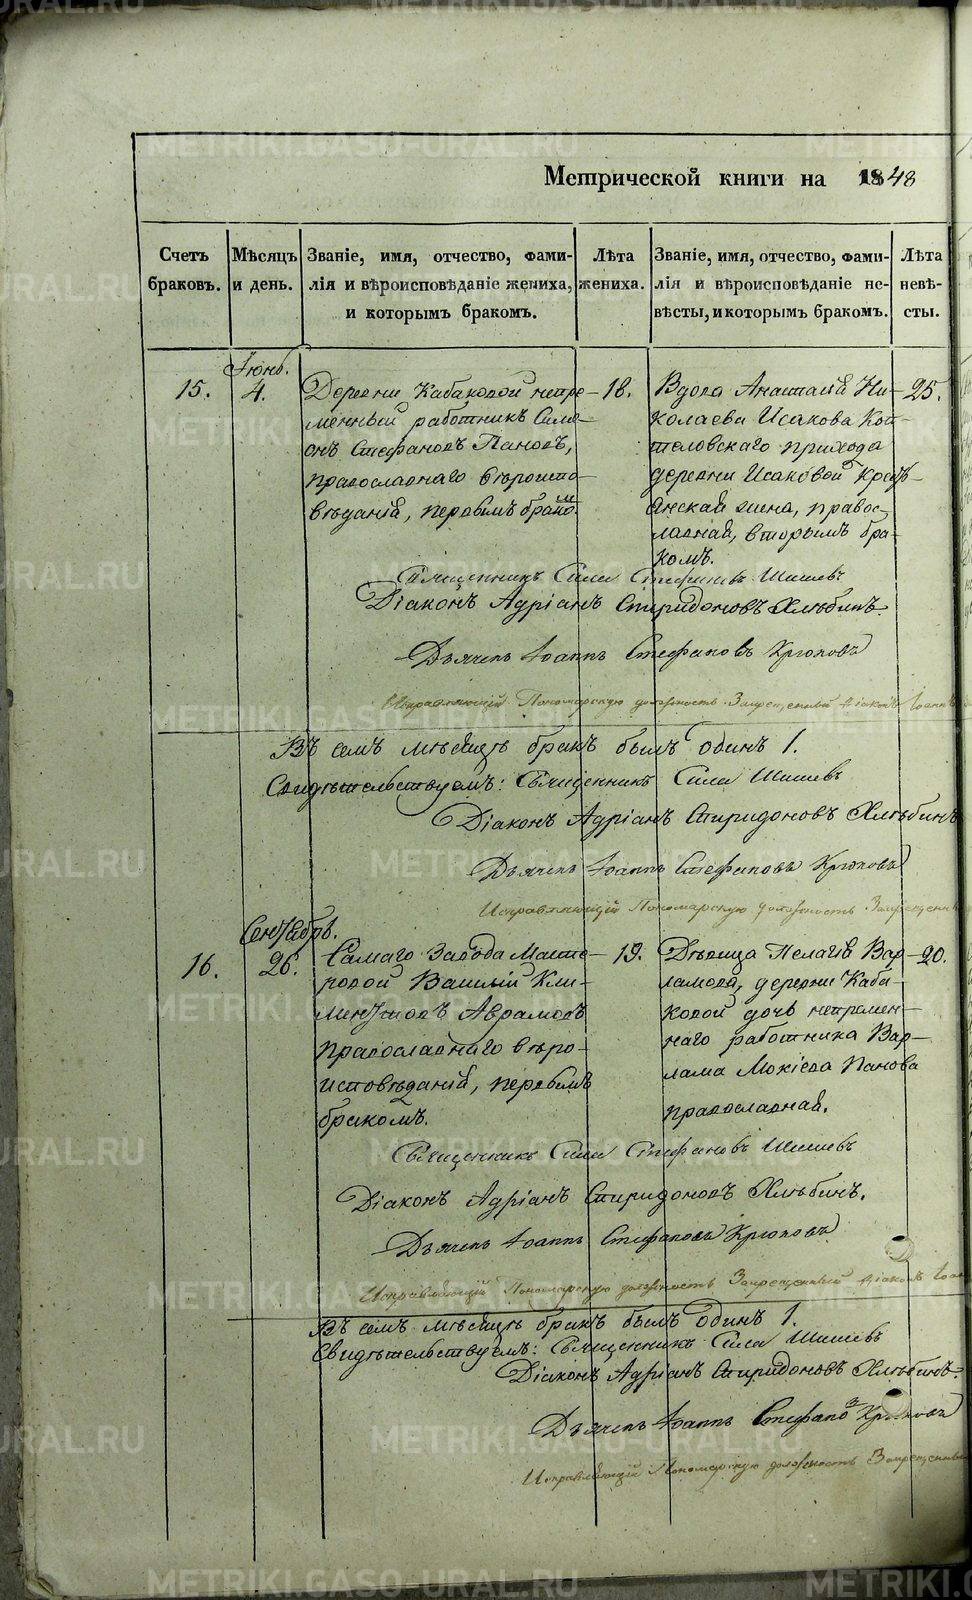 Метрической книги на 1848
Счетъ браковъ.
Мѣсяцъ и день.
Званіе, имя, отчество, фами-
лія и вѣроисповѣданіе жениха,
и которымъ бракомъ.
Лѣта жениха.
Званіе, имя, отчество, фами-
лія и вѣроисповѣданіе не-
вѣсты, и которымъ бракомъ.
Лѣта невѣ-
сты.
15.
Іюнь.
4.
Деревни Кабаковой непре-
менный работникъ Симе-
онъ Стефановъ Пановъ,
православнаго вѣроиспо-
вѣданія, первымъ бракомъ
18.
Вдова Анастасія Ни-
колаева Исакова
прихода
деревни Исаковой Кресть-
янская жена, правос-
лавная, вторымъ бра-
комъ.
25.
Священникъ Сила Стефановъ Шишевъ
Діаконъ Адріанъ Спиридоновъ Хлѣбинъ
Дьячекъ Іоаннъ Стефановъ Крюковъ
Исправляющій Пономарскую должность Запрещенный Діаконъ Іоаннъ
Въ семъ мѣсяцѣ бракъ былъ одинъ 1.
Свидѣтельствуемъ: Священникъ Сила Шишевъ
Діаконъ Адріанъ Спиридоновъ Хлѣбинъ
Дьячекъ Іоаннъ Стефановъ Крюковъ
Исправляющій Пономарскую должность Запрещенный
16.
Сентябрь.
26.
Самаго Завода Масте-
ровой Василій Кли-
ментовъ Аврамовъ
православнаго вѣро-
исповѣданія, первымъ
бракомъ.
19.
Дѣвица Пелагія Вар-
ламова, деревни Каба-
ковой дочь непремен-
наго работника Вар-
лама Мокіева Панова
православная.
20.
Священникъ Сила Стефановъ Шишевъ
Діаконъ Адріанъ Спиридоновъ Хлѣбинъ.
Дьячекъ Іоаннъ Стефановъ Крюковъ
Исправляющій Пономарскую должность Запрещенный Діаконъ
Въ семъ мѣсяцѣ бракъ былъ одинъ 1.
Свидѣтельствуемъ: Священникъ Сила Шишевъ
Діаконъ Адріанъ Спиридоновъ Хлѣбинъ.
Дьячекъ Іоаннъ Стефановъ Крюковъ
Исправляющій Пономарскую должность Запрещенный
METRIKI.GASO-URAL.RU